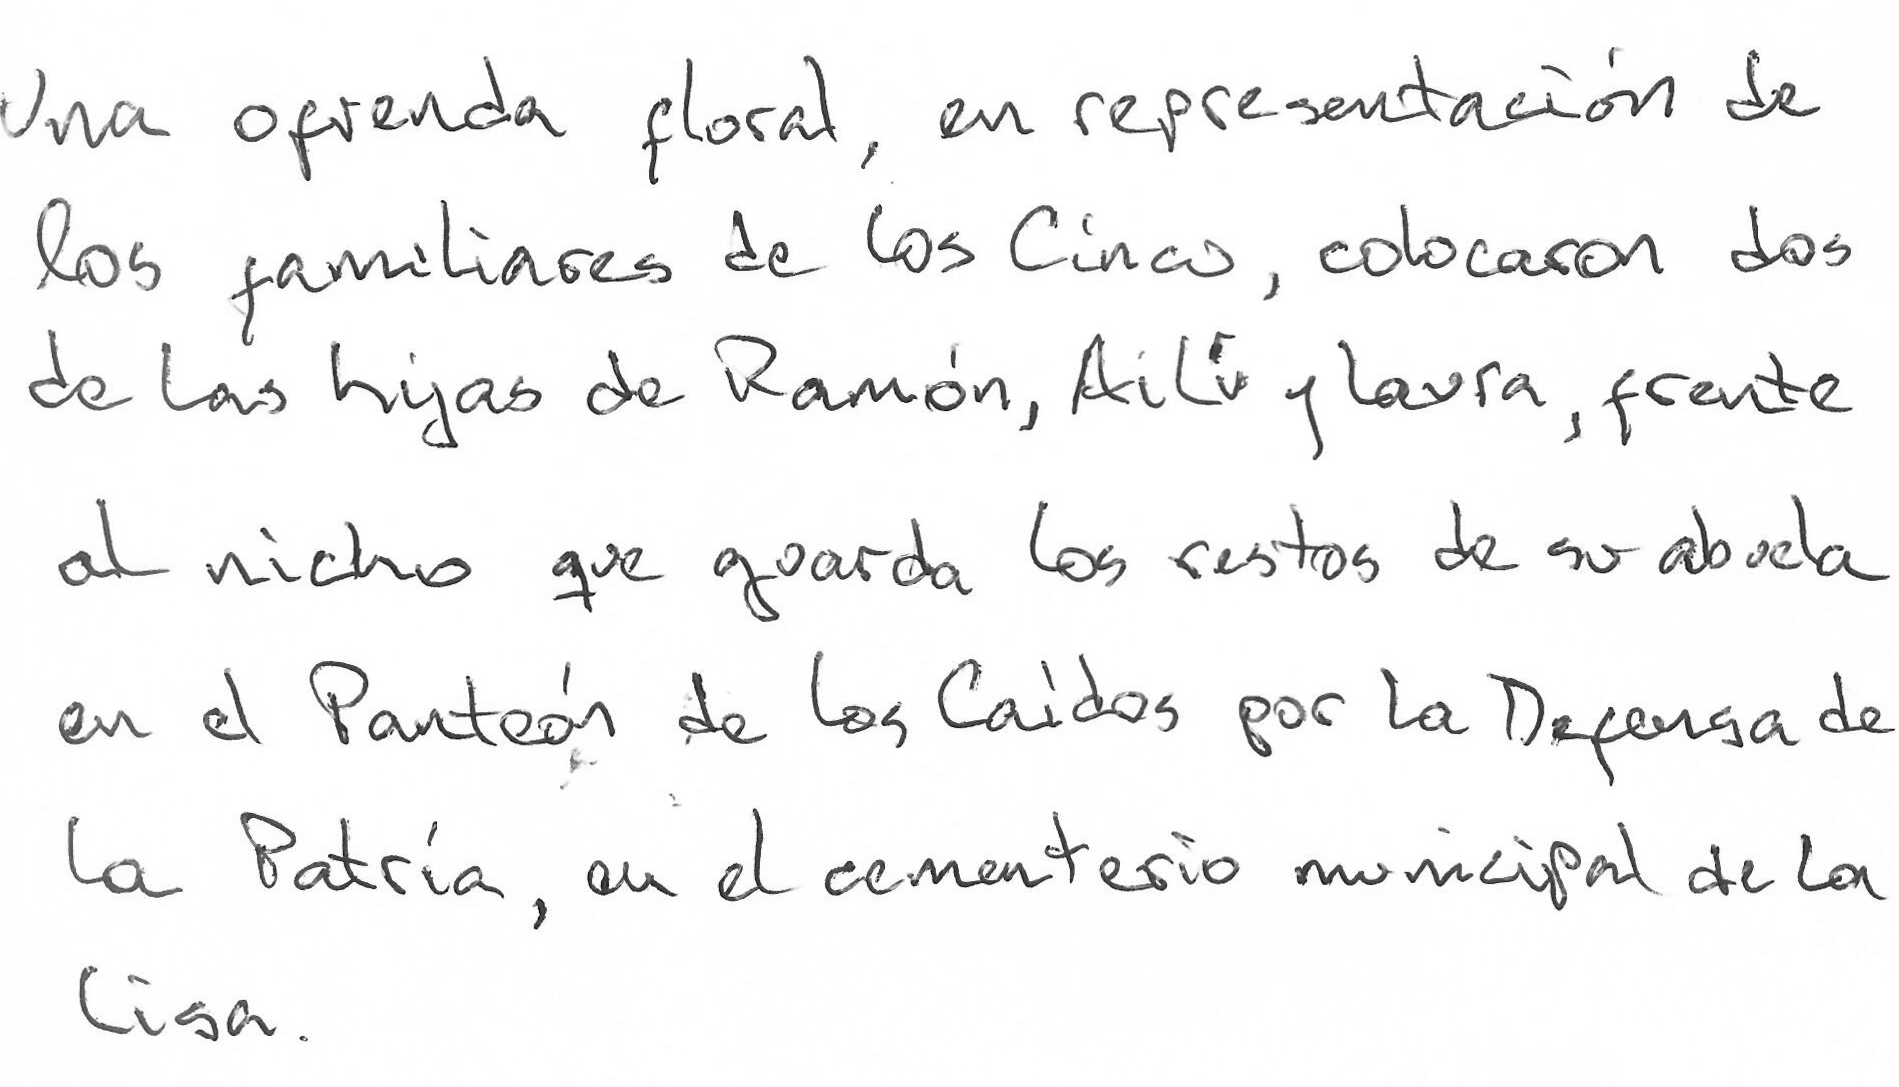 Una ofrenda floral, en representación de
los familiares de los Cinco, colocaron dos
de las hijas de Ramón, Ailí y Laura, frente
al nicho que guarda los restos de su abuela
en el Panteón de los Caídos por la Defensa de
la Patría, en el cementerio municipal de La
Lisa.